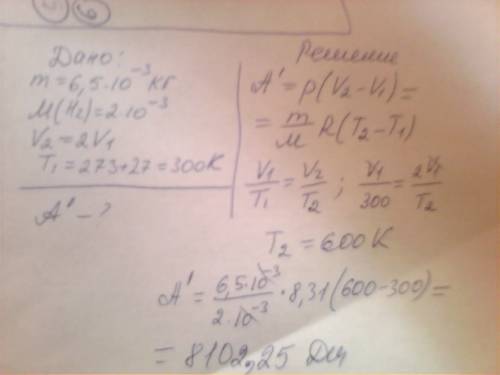 5 6
Дано:
m = 6,5·10⁻³ кг
M(H₂) = 2·10⁻³
V₂ = 2V₁
T₁ = 273+27 = 300K
A' - ?
Решение
A' = p(V₂ - V₁) =
= m/M R(T₂ - T₁)
V₁/T₁ = V₂/T₂ ; V₁/300 = 2V₁/T₂
T₂ = 600 K
A' = 6,5·10⁻³/2·10⁻³ · 8,31(600-300) =
= 8102,25 Дж